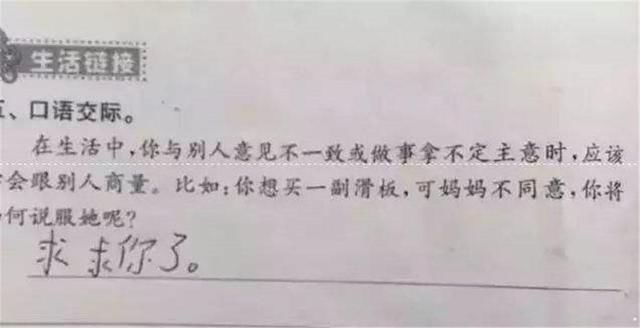 生活链接
、口语交际。
在生活中，你与别人意见不一致或做事拿不定主意时，应该
会跟别人商量。比如：你想买一副滑板，可妈妈不同意，你将
何说服她呢？
求求你了。